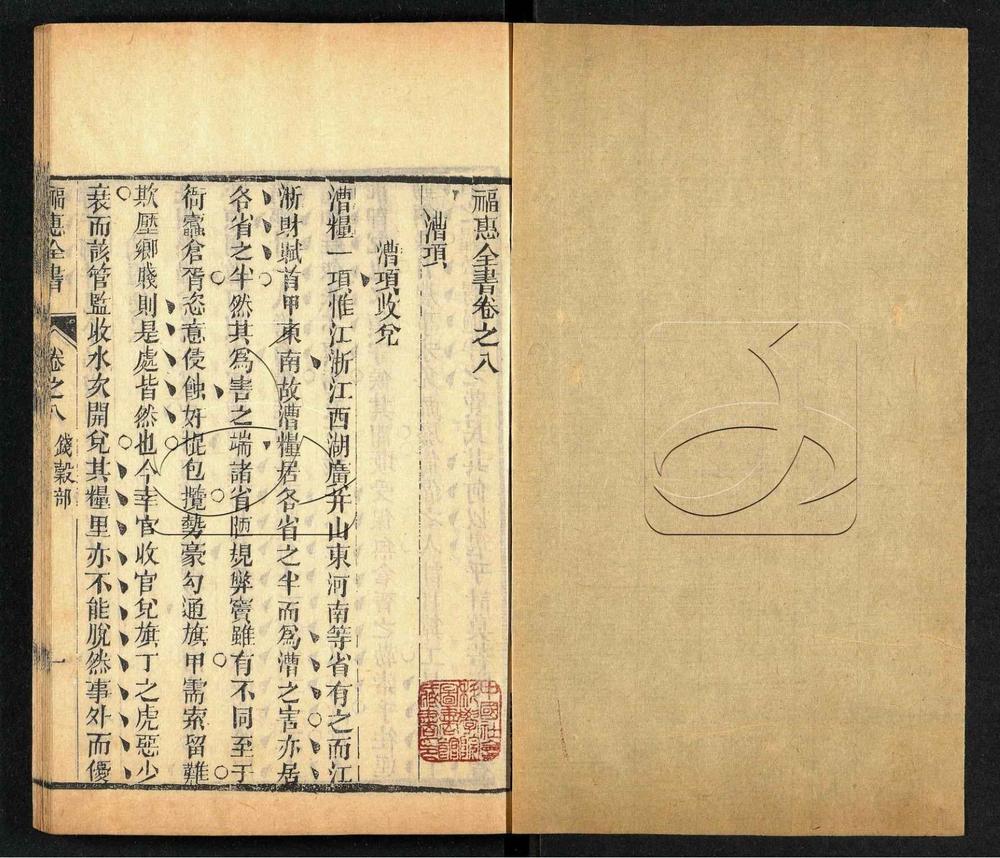 福惠全書卷之八
漕項
漕項收兌
漕糧一項惟江浙江西湖廣并山東河南等省有之而江
浙財賦首甲東南故漕糧居各省之半而爲漕之害亦居
各省之半然其爲害之端諸省陋規弊竇雖有不同至于
衙蠹倉胥恣意侵蝕奸棍包攬勢豪勾通旗甲需索留難
欺壓鄉賤則是處皆然也今幸官收官兌旗丁之虎惡少
衰而該管監收水次開兌其糧里亦不能脫然事外而優
福惠全書
卷之八
錢穀部
一
中國社會
科學院
圖書館
藏書